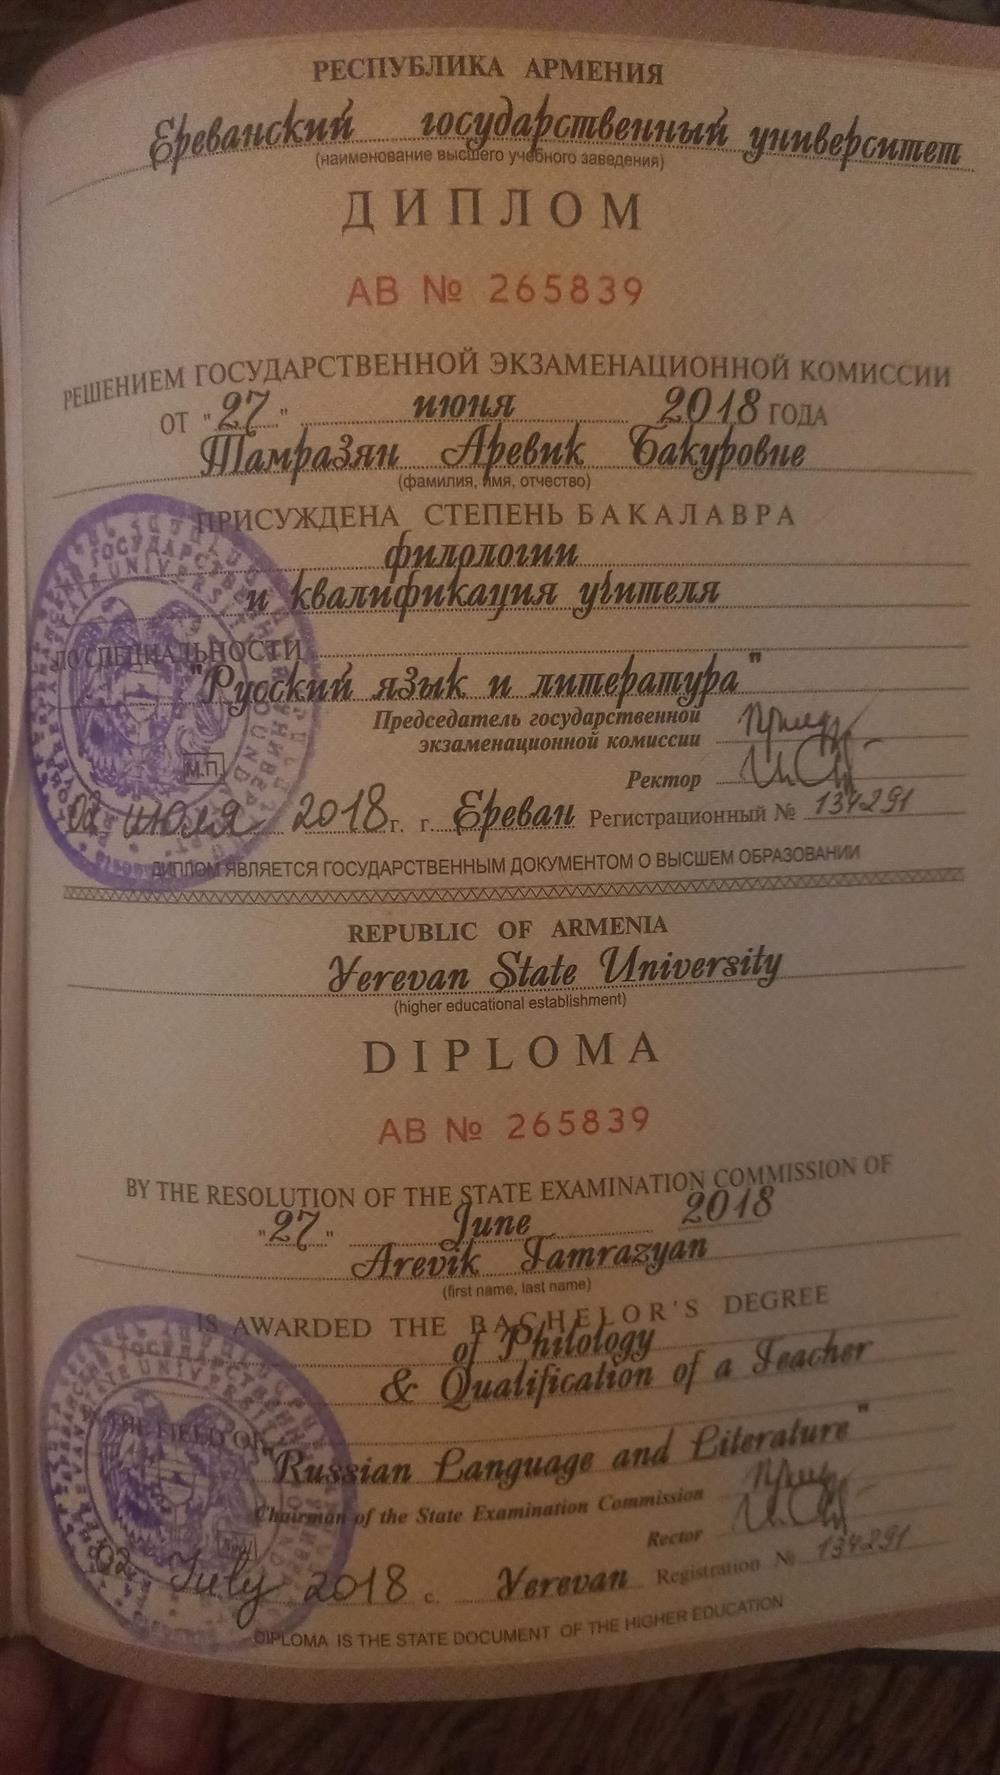 РЕСПУБЛИКА АРМЕНИЯ
Ереванский государственный университет
(наименование высшего учебного заведения)
ДИПЛОМ
АВ № 265839
РЕШЕНИЕМ ГОСУДАРСТВЕННОЙ ЭКЗАМЕНАЦИОННОЙ КОМИССИИ
ОТ "27" июня 2018 ГОДА
Тамразян Аревик Бакуровне
(фамилия, имя, отчество)
ПРИСУЖДЕНА СТЕПЕНЬ БАКАЛАВРА
филологии
и квалификация учителя
ПО СПЕЦИАЛЬНОСТИ
"Русский язык и литература"
Председатель государственной
экзаменационной комиссии
М.П.
Ректор
02 июля 2018г. г. Ереван Регистрационный № 134291
ДИПЛОМ ЯВЛЯЕТСЯ ГОСУДАРСТВЕННЫМ ДОКУМЕНТОМ О ВЫСШЕМ ОБРАЗОВАНИИ
REPUBLIC OF ARMENIA
Yerevan State University
(higher educational establishment)
DIPLOMA
AB № 265839
BY THE RESOLUTION OF THE STATE EXAMINATION COMMISSION OF
"27" June 2018
Arevik Tamrazyan
(first name, last name)
IS AWARDED THE BACHELOR'S DEGREE
of Philology
& Qualification of a Teacher
IN THE FIELD OF
"Russian Language and Literature"
Chairman of the State Examination Commission
Rector
02 July 2018 c. Yerevan Registration № 134291
DIPLOMA IS THE STATE DOCUMENT OF THE HIGHER EDUCATION